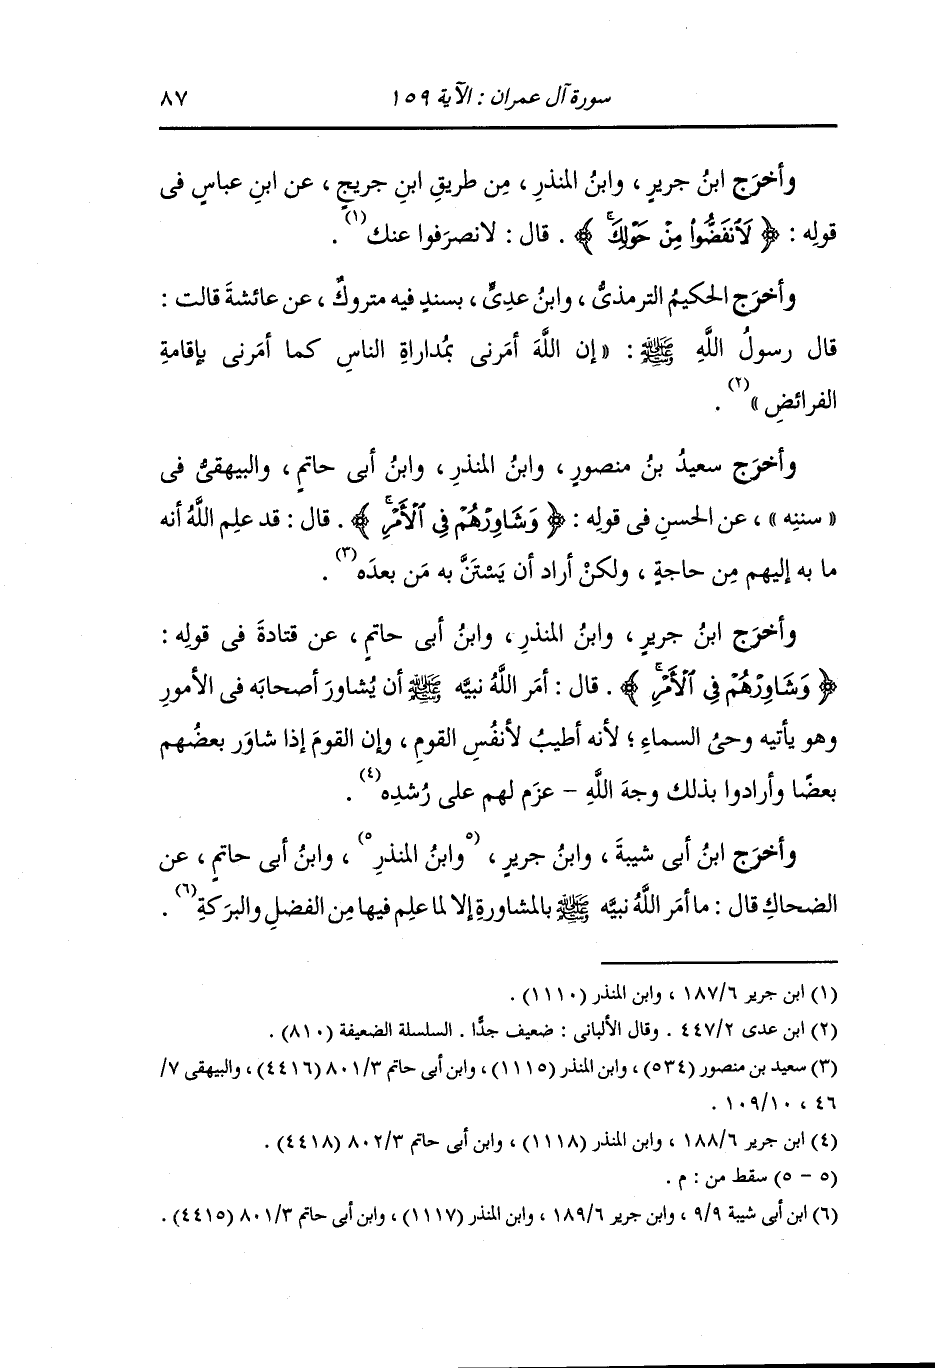 سورة آل عمران : الآية ١٥٩ ٨٧
وأخرَج ابنُ جريرٍ ، وابنُ المنذرِ ، مِن طريقِ ابنِ جريجٍ ، عن ابنِ عباسٍ فى
قولِه : ﴿ لَٱنفَضُّوا۟ مِنْ حَوْلِكَۖ ﴾ . قال : لانصرَفوا عنك(١) .
وأخرَج الحكيمُ الترمذىُّ ، وابنُ عدِىٍّ ، بسندٍ فيه متروكٌ ، عن عائشةَ قالت :
قال رسولُ اللَّهِ ﷺ : « إن اللَّهَ أمَرنى بمُداراةِ الناسِ كما أمَرنى بإقامةِ
الفرائضِ »(٢) .
وأخرَج سعيدُ بنُ منصورٍ ، وابنُ المنذرِ ، وابنُ أبى حاتمٍ ، والبيهقىُّ فى
« سننِه » ، عن الحسنِ فى قولِه : ﴿ وَشَاوِرْهُمْ فِى ٱلْأَمْرِۖ ﴾ . قال : قد علِم اللَّهُ أنه
ما به إليهم مِن حاجةٍ ، ولكنْ أراد أن يَسْتَنَّ به مَن بعدَه(٣) .
وأخرَج ابنُ جريرٍ ، وابنُ المنذرِ ، وابنُ أبى حاتمٍ ، عن قتادةَ فى قولِه :
﴿ وَشَاوِرْهُمْ فِى ٱلْأَمْرِۖ ﴾ . قال : أمَر اللَّهُ نبيَّه ﷺ أن يُشاورَ أصحابَه فى الأمورِ
وهو يأتيه وحىُ السماءِ ؛ لأنه أطيبُ لأنفُسِ القومِ ، وإن القومَ إذا شاوَر بعضُهم
بعضًا وأرادوا بذلك وجهَ اللَّهِ – عزَم لهم على رُشدِه(٤) .
وأخرَج ابنُ أبى شيبةَ ، وابنُ جريرٍ ، (٥وابنُ المنذرِ٥) ، وابنُ أبى حاتمٍ ، عن
الضحاكِ قال : ما أمَر اللَّهُ نبيَّه ﷺ بالمشاورةِ إلا لما علِم فيها مِن الفضلِ والبرَكةِ(٦) .
(١) ابن جرير ١٨٧/٦ ، وابن المنذر (١١١٠) .
(٢) ابن عدى ٤٤٧/٢ . وقال الألبانى : ضعيف جدًّا . السلسلة الضعيفة (٨١٠) .
(٣) سعيد بن منصور (٥٣٤) ، وابن المنذر (١١١٥) ، وابن أبى حاتم ٨٠١/٣ (٤٤١٦) ، والبيهقى ٧/
٤٦ ، ١٠٩/١٠ .
(٤) ابن جرير ١٨٨/٦ ، وابن المنذر (١١١٨) ، وابن أبى حاتم ٨٠٢/٣ (٤٤١٨) .
(٥ – ٥) سقط من : م .
(٦) ابن أبى شيبة ٩/٩ ، وابن جرير ١٨٩/٦ ، وابن المنذر (١١١٧) ، وابن أبى حاتم ٨٠١/٣ (٤٤١٥) .